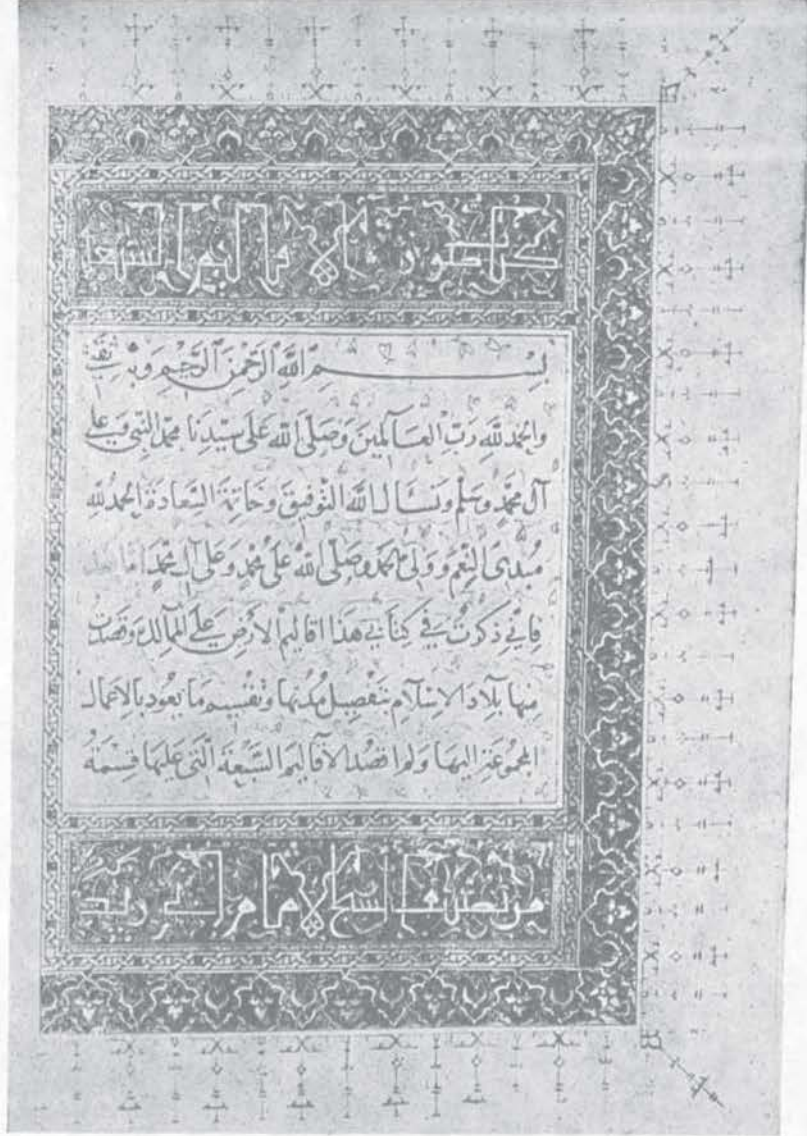 كتاب صور الاقاليم السبعة
بِسْمِ اللَّهِ الرَّحْمٰنِ الرَّحِيْمِ وَبِهِ ثقتي
والحمد لله رَبّ العَالمِينَ وَصَلَّى الله عَلَى سَيّدِنَا محمّد النَّبىِ وعلى
آل محمّدٍ وسَلَّم ونَسَال الله التَّوْفيقَ وخَاتِمَةَ السَّعَادَة الحمدُ لله
مُبدئ النِعَم وَوَلىّ الحمد وصَلَّى اللهُ عَلَى مُحمّدٍ وعَلى آل محمّدٍ امّا بعد
فانِّي ذكَرتُ في كتابي هذا اقاليمَ الارضِ عَلَى الممالك وقصدتُ
مِنها بلادَ الاسْلام بتفصِيل مُدُنها وتقْسِيم مَا يعُود بالاعمال
المجموعَة اليهَا ولم اقصُد الأقاليمَ السَّبْعَةَ الَّتى عليهَا قِسْمَةُ
من تصنيف الشيخ الامام ابي زيد